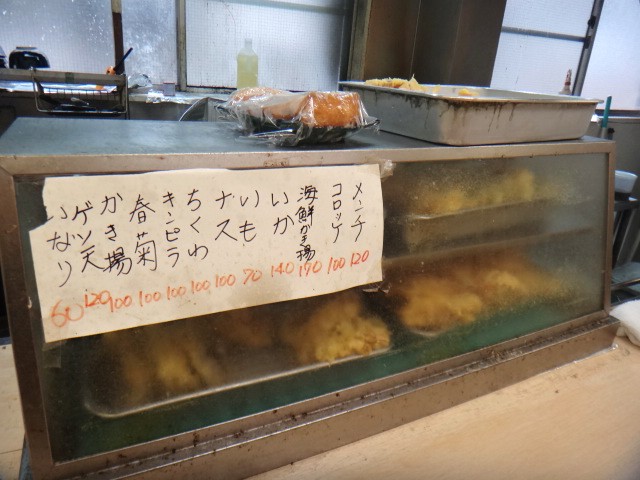 メンチ 120
コロッケ 100
海鮮かき揚 170
いか 140
いも 70
ナス 100
ちくわ 100
キンピラ 100
春菊 100
かき揚 100
ゲソ天 120
いなり 60